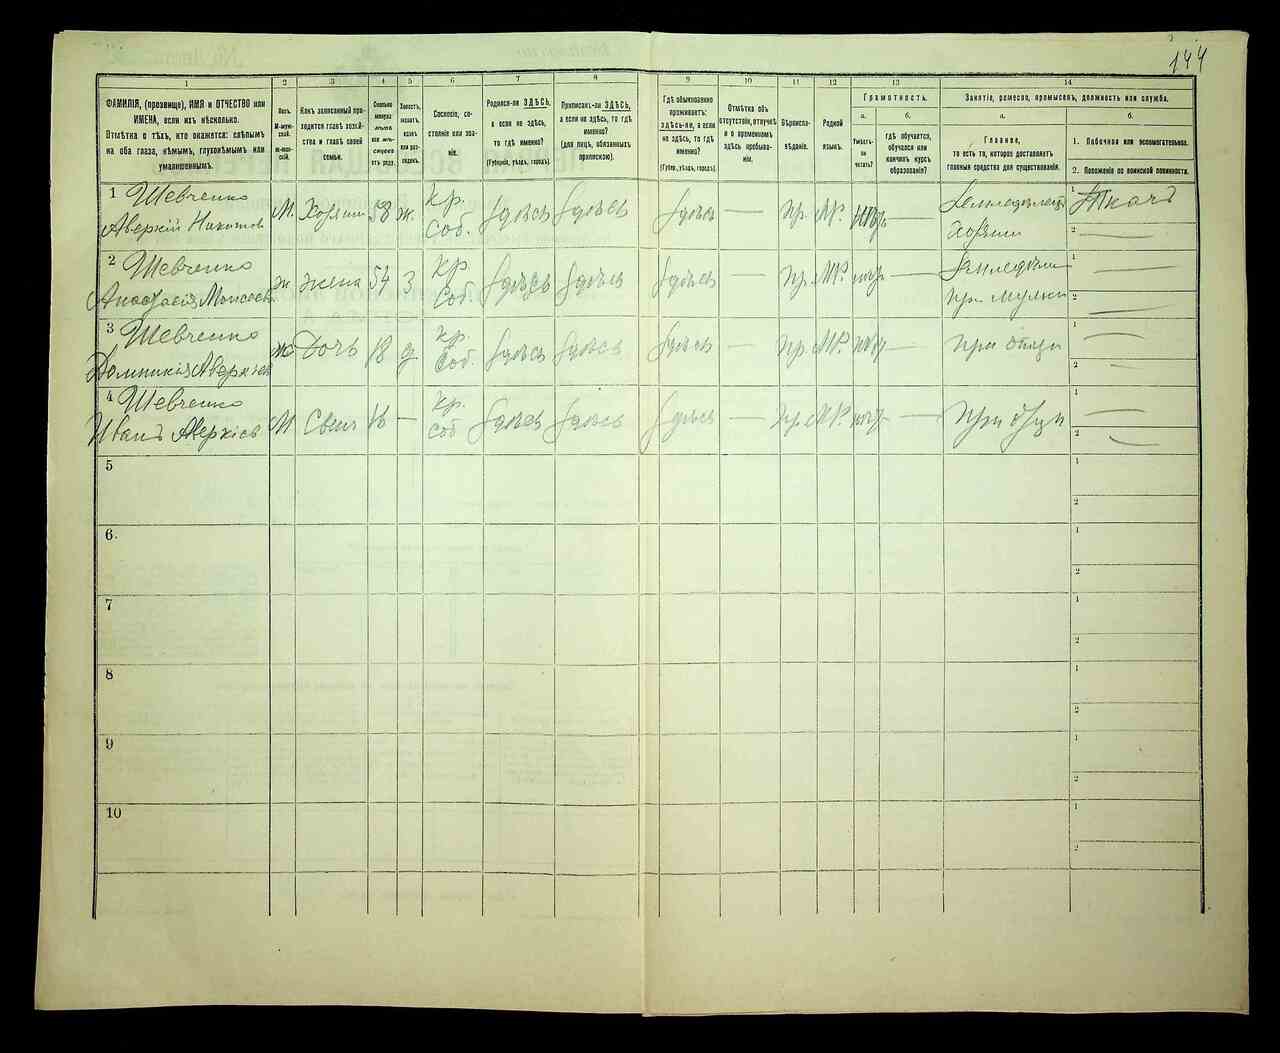 144
1
2
3
4
5
6
7
8
9
10
11
12
13
14
ФАМИЛІЯ, (прозвище), ИМЯ и ОТЧЕСТВО или
ИМЕНА, если ихъ нѣсколько.
Отмѣтка о тѣхъ, кто окажется: слѣпымъ
на оба глаза, нѣмымъ, глухонѣмымъ или
умалишеннымъ.
Полъ.
М-муж-
ской.
Ж-жен-
скій.
Какъ записанный при-
ходится главѣ хозяй-
ства и главѣ своей
семьи.
Сколько
минуло
лѣтъ
или мѣ-
сяцевъ
отъ роду.
Холостъ,
женатъ,
вдовъ
или раз-
веденъ.
Сословіе, со-
стояніе или зва-
ніе.
Родился-ли ЗДѢСЬ,
а если не здѣсь,
то гдѣ именно?
(Губернія, уѣздъ, городъ).
Приписанъ-ли ЗДѢСЬ,
а если не здѣсь, то гдѣ
именно?
(для лицъ, обязанныхъ
припискою).
Гдѣ обыкновенно
проживаетъ:
здѣсь-ли, а если
не здѣсь, то гдѣ
именно?
(Губер., уѣздъ, городъ).
Отмѣтка объ
отсутствіи, отлучкѣ
и о временномъ
здѣсь пребыва-
ніи.
Вѣроиспо-
вѣданіе.
Родной
языкъ.
Грамотность.
а.
Умѣетъ-
ли
читать?
б.
гдѣ обучается,
обучался или
кончилъ курсъ
образованія?
Занятіе, ремесло, промыселъ, должность или служба.
а.
Главное,
то есть то, которое доставляетъ
главныя средства для существованія.
б.
1. Побочное или вспомогательное.
2. Положеніе по воинской повинности.
1 Шевченко
Аверкій Никитовъ
М. Хозяин 58 ж. Кр. Соб. Здѣсь Здѣсь Здѣсь — Пр. МР.
Земледѣлец
Хозяин
1 Ткачъ
2 —
2 Шевченко
Анастасія
ж жена 54 З Кр Соб. Здѣсь Здѣсь Здѣсь — Пр. МР. —
При мужѣ
1 —
2 —
3 Шевченко
Домникія Аверкіев
ж Дочь 18 д Кр. Соб. Здѣсь Здѣсь Здѣсь — Пр. МР. —
При отцѣ
1 —
2 —
4 Шевченко
Иванъ Аверкіев
М Сынъ 16 — Кр. Соб Здѣсь Здѣсь Здѣсь — Пр. МР. —
При отцѣ
1 —
2 —
5
1
2
6.
1
2
7
1
2
8
1
2
9
1
2
10
1
2